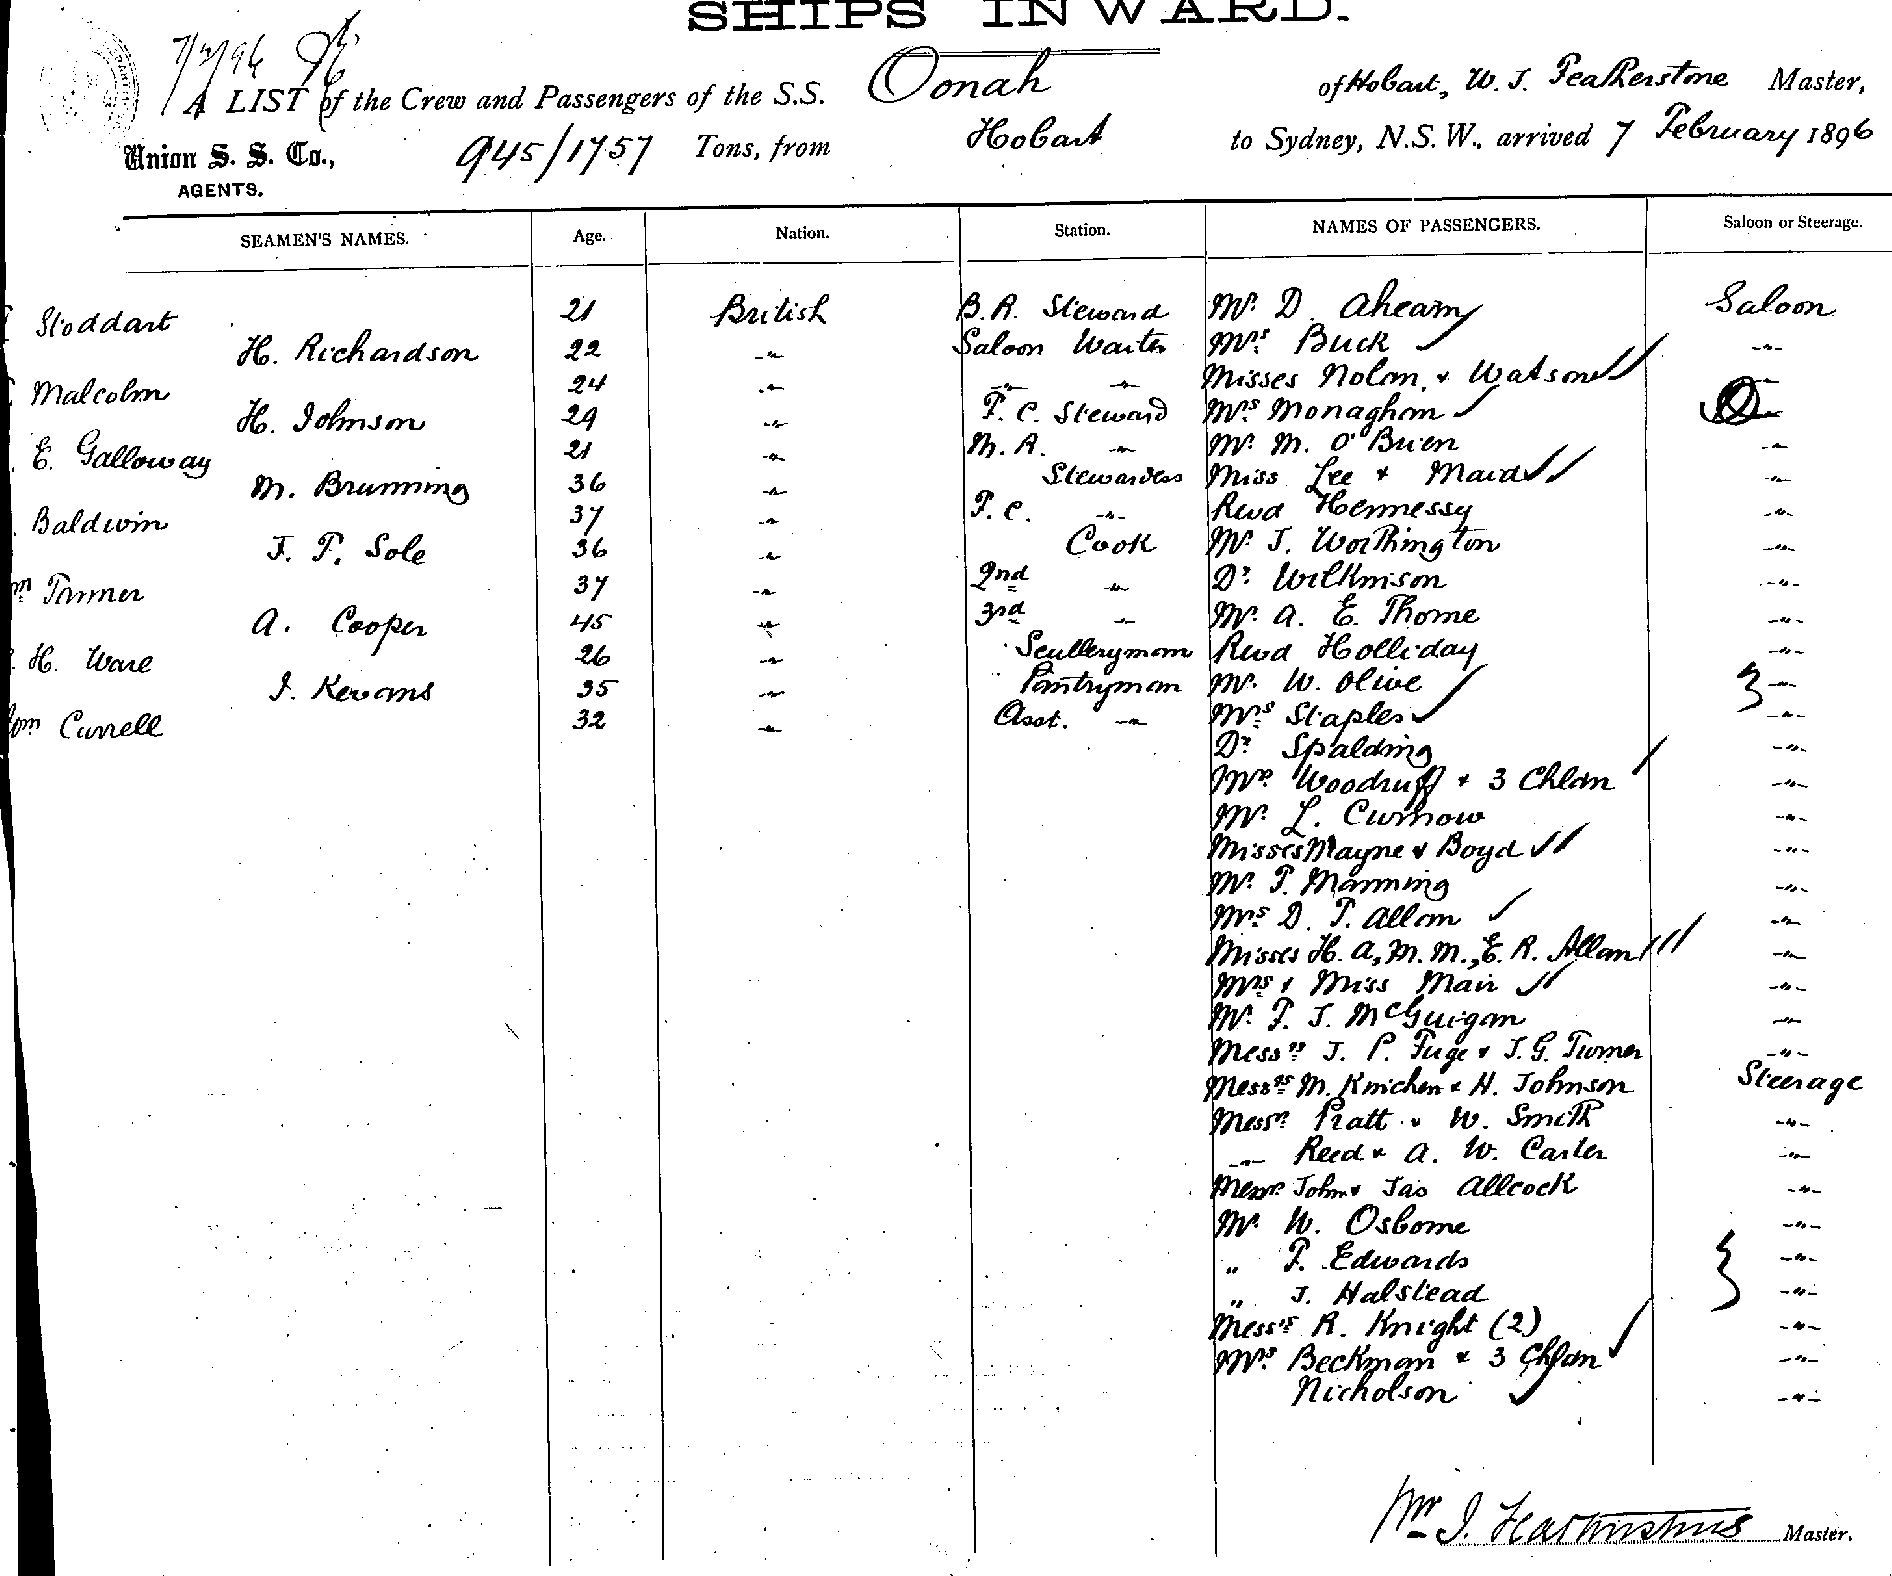 SHIPS INWARD.
7/2/96
A LIST of the Crew and Passengers of the S.S. Oonah of Hobart, W. J. Featherstone Master,
Union S. S. Co., AGENTS. 945/1757 Tons, from Hobart to Sydney, N.S.W., arrived 7 February 1896
SEAMEN'S NAMES. Age. Nation. Station. NAMES OF PASSENGERS. Saloon or Steerage.
Stoddart 21 British B. R. Steward Mr. D. Ahearn Saloon
H. Richardson 22 -"- Saloon Waiter Mrs Buck -"-
Malcolm 24 -"- -"- -"- Misses Nolan & Watson -"-
H. Johnson 29 -"- F. C. Steward Mrs Monaghan
E. Galloway 21 -"- M. R. -"- Mr. M. O'Brien -"-
M. Brunning 36 -"- Stewardess Miss Lee & Maid -"-
Baldwin 37 -"- F. C. -"- Revd Hennessy -"-
J. P. Sole 36 -"- Cook Mr. J. Worthington -"-
Turner 37 -"- 2nd -"- Dr. Wilkinson -"-
A. Cooper 45 -"- 3rd -"- Mr. A. E. Thorne -"-
H. Ware 26 -"- Sculleryman Revd Holliday -"-
J. Kevans 35 -"- Pantryman Mr. W. Olive -"-
Currell 32 -"- Asst. -"- Mrs Staples -"-
Dr. Spalding -"-
Mrs Woodruff & 3 Chldn -"-
Mr. L. Curnow -"-
Misses Mayne & Boyd -"-
Mr. P. Manning -"-
Mrs D. T. Allan -"-
Misses H. A, M. M., E. R. Allan -"-
Mrs & Miss Mair -"-
Mr. P. J. McGuigan -"-
Messrs J. P. Fuge & J. G. Turner -"-
Messrs M. Kinchen & H. Johnson Steerage
Messrs Pratt & W. Smith -"-
-"- Reed & A. W. Carter -"-
Messrs John & Jas Allcock -"-
Mr. W. Osborne -"-
" F. Edwards -"-
" J. Halstead -"-
Messrs R. Knight (2) -"-
Mrs Beckman & 3 Chldn -"-
Nicholson -"-
Wm J. Featherstone Master.